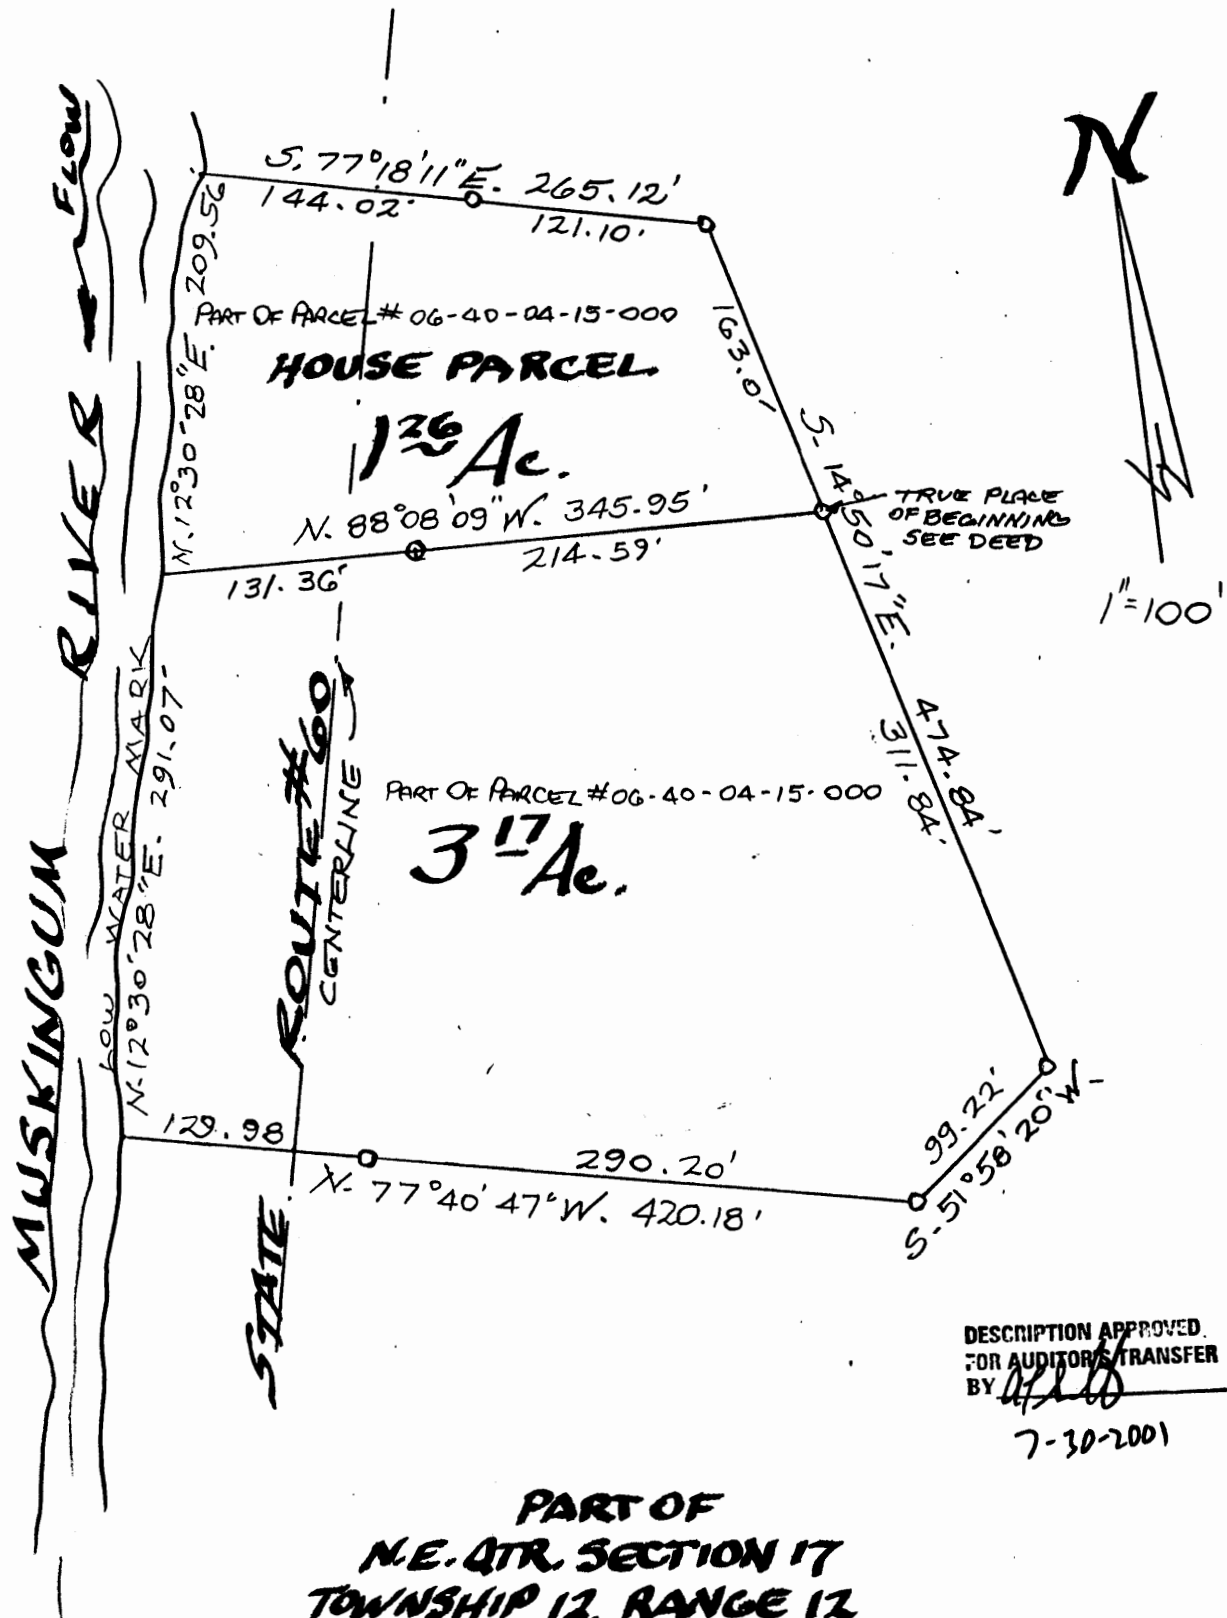 N
FLOW
S. 77°18'11"E. 265.12'
144.02'
121.10'
N. 12°30'28"E. 209.56
PART OF PARCEL # 06-40-04-15-000
HOUSE PARCEL
1 26 Ac.
163.0'
S. 14°50'17"E.
474.84'
311.84'
TRUE PLACE
OF BEGINNING
SEE DEED
1"=100'
N. 88°08'09"W. 345.95'
131.36'
214.59'
MUSKINGUM RIVER
LOW WATER MARK
N. 12°30'28"E. 291.07'
STATE ROUTE #60
CENTERLINE
PART OF PARCEL #06-40-04-15-000
3 17 Ac.
129.98
290.20'
N. 77°40'47"W. 420.18'
99.22'
S. 51°58'20"W.
DESCRIPTION APPROVED
FOR AUDITOR'S TRANSFER
BY
7-30-2001
PART OF
N.E. QTR. SECTION 17
TOWNSHIP 12, RANGE 12